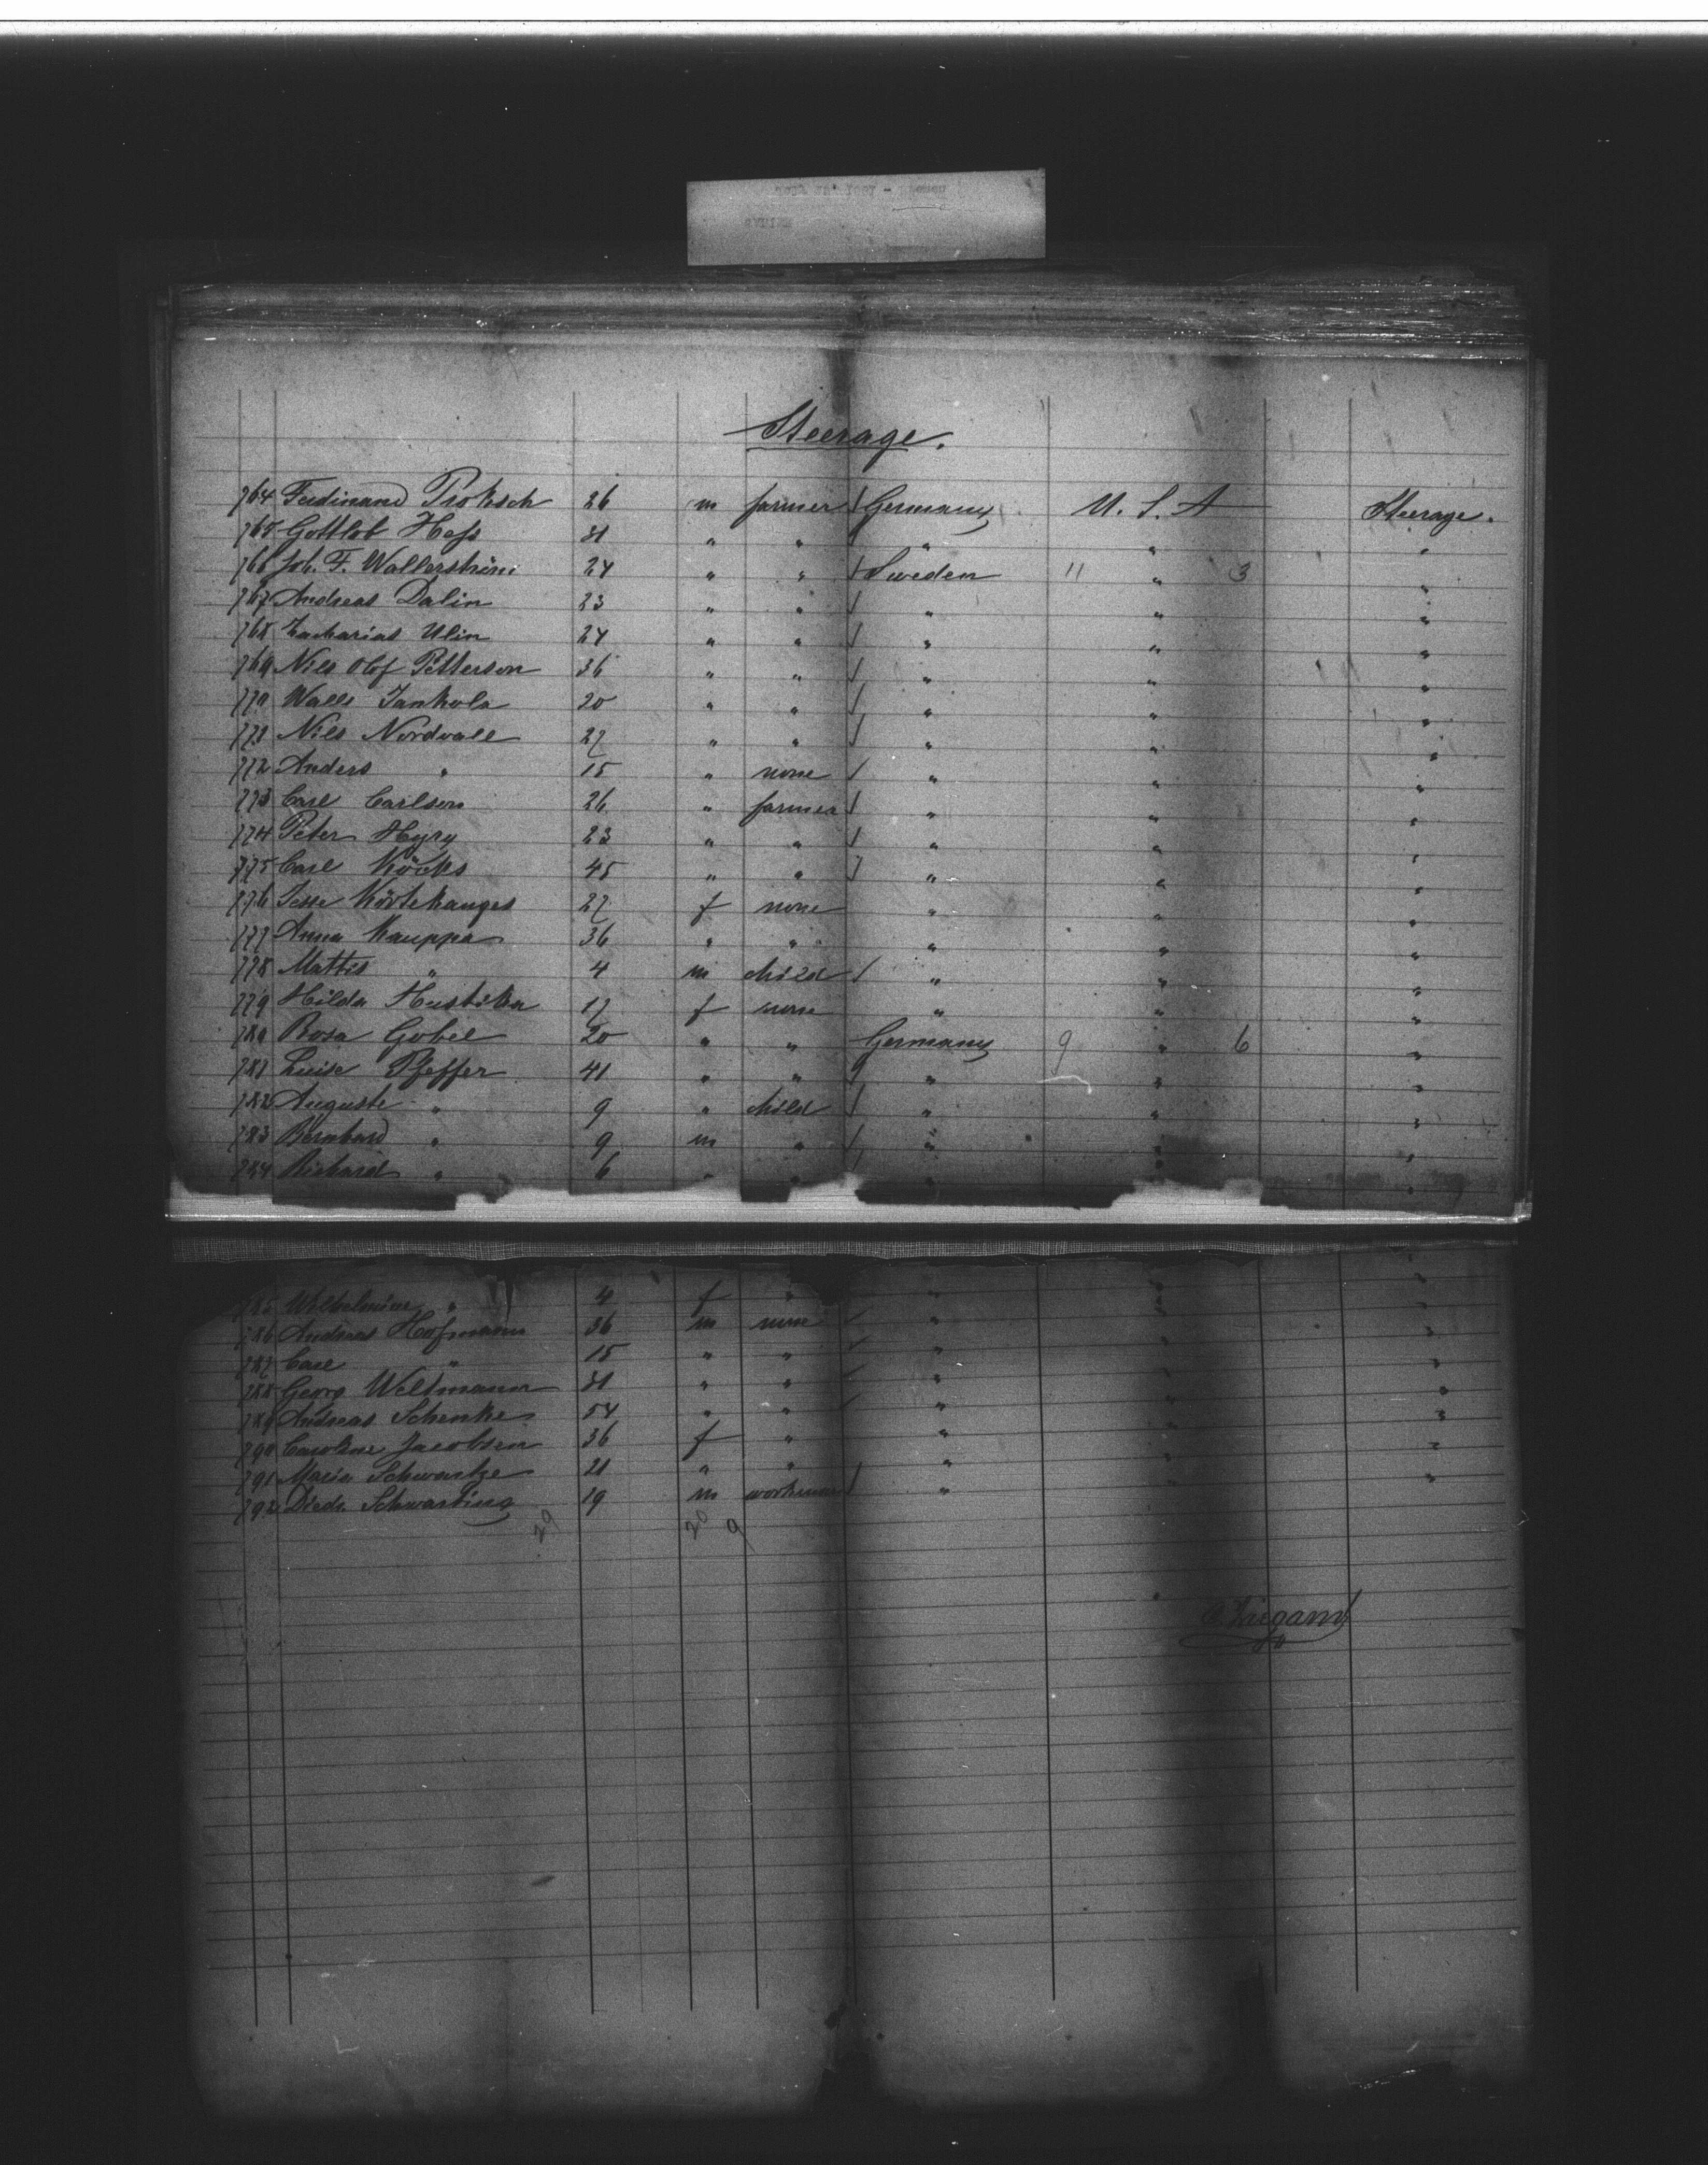 Steerage.
764 Ferdinand Proksch 26 m farmer / Germany U. S. A Steerage.
765 Gottlob Hess 31 " " / " " "
766 Joh. F. Wallerström 24 " " / Sweden 11 " 3 "
767 Andreas Dalin 23 " " / " " "
768 Zacharias Ulin 24 " " / " " "
769 Nils Olof Petterson 36 " " / " " "
770 Walli Jankola 20 " " / " " "
771 Nils Nordvall 27 " " / " " "
772 Anders " 15 " none / " " "
773 Carl Carlson 26 " farmer / " " "
774 Peter Hyry 23 " " / " " "
775 Carl Köcks 45 " " / " " "
776 27 f none " " "
777 Anna Kauppa 36 " " " " "
778 Mattis " 4 m child / " " "
779 Hilda 17 f none " " "
780 Rosa Gobel 20 " " Germany 9 " 6 "
781 Luise Pfeffer 41 " " " " "
782 Auguste " 9 " child / " " "
783 Bernhard " 9 m " / " " "
784 Richard " 6 " " / " " "
785 Wilhelmine " 4 f " " " "
786 Andreas Hofmann 36 m none / " " "
787 Carl " 15 " " / " " "
788 Georg Weltmann 31 " " / " " "
789 Andreas Schenke 54 " " / " " "
790 Caroline Jacobsen 36 f " " " "
791 Maria Schwartze 21 " " " " "
792 Diedr. Schwarting 19 m workman / " "
29 20 9